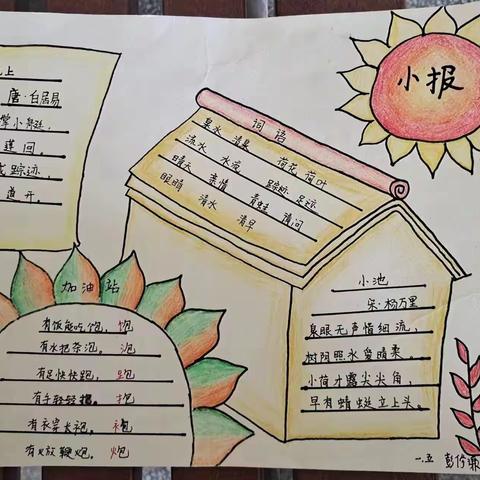 小报
上
唐·白居易
撑小艇，
莲回。
藏踪迹，
道开。
词语
泉水 清泉 荷花 荷叶
流水 水流 踪迹 足迹
晴天 亲情 青蛙 请问
眼睛 清水 清早
小池
宋·杨万里
泉眼无声惜细流，
树阴照水爱晴柔。
小荷才露尖尖角，
早有蜻蜓立上头。
加油站
有饭能吃饱，饱
有水把茶泡。泡
有足快快跑，跑
有手轻轻抱。抱
有衣穿长袍，袍
有火放鞭炮。炮
一.五